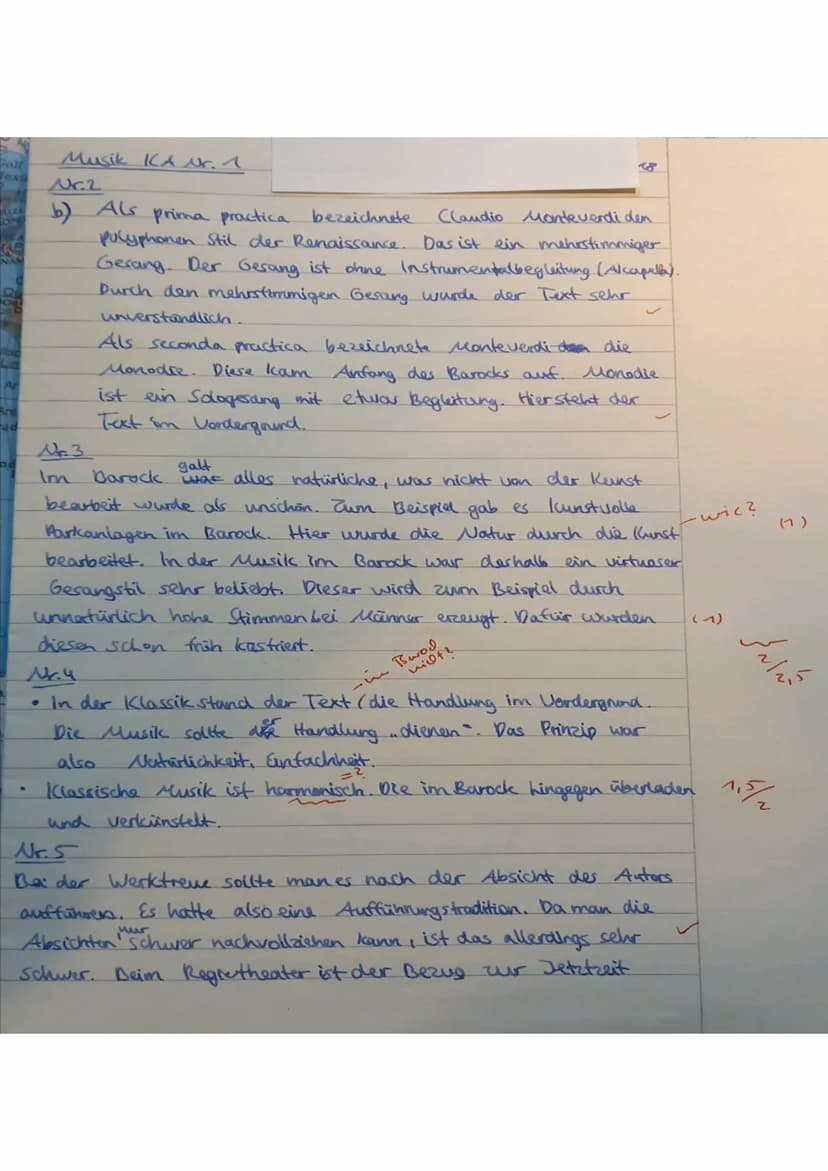 Musik KA Nr. 1
18
Nr. 2
b) Als prima practica bezeichnete Claudio Monteverdi den
polyphonen Stil der Renaissance. Das ist ein mehrstimmiger
Gesang. Der Gesang ist ohne Instrumentalbegleitung (Alcapella).
Durch den mehrstimmigen Gesang wurde der Text sehr
unverständlich.
Als seconda practica bezeichnete Monteverdi die
Monodie. Diese kam Anfang des Barocks auf. Monodie
ist ein Sologesang mit etwas Begleitung. Hier steht der
Text im Vordergrund.
Nr. 3
Im Barock galt alles natürliche, was nicht von der Kunst
bearbeit wurde als unschön. Zum Beispiel gab es kunstvolle
- wie?
(1)
Parkanlagen im Barock. Hier wurde die Natur durch die Kunst
bearbeitet. In der Musik im Barock war deshalb ein virtuoser
Gesangstil sehr beliebt. Dieser wird zum Beispiel durch
unnatürlich hohe Stimmen bei Männer erzeugt. Dafür wurden
(1)
diesen schon früh kastriert.
2/2,5
Nr. 4
- im Barock nicht?
• In der Klassik stand der Text / die Handlung im Vordergrund.
Die Musik sollte der Handlung „dienen“. Das Prinzip war
also Natürlichkeit, Einfachheit.
= ?
• Klassische Musik ist harmonisch. Die im Barock hingegen überladen
1,5/2
und verkünstelt.
Nr. 5
Bei der Werktreue sollte man es nach der Absicht des Autors
aufführen. Es hatte also eine Aufführungstradition. Da man die
Absichten nur schwer nachvollziehen kann, ist das allerdings sehr
schwer. Beim Regietheater ist der Bezug zur Jetztzeit